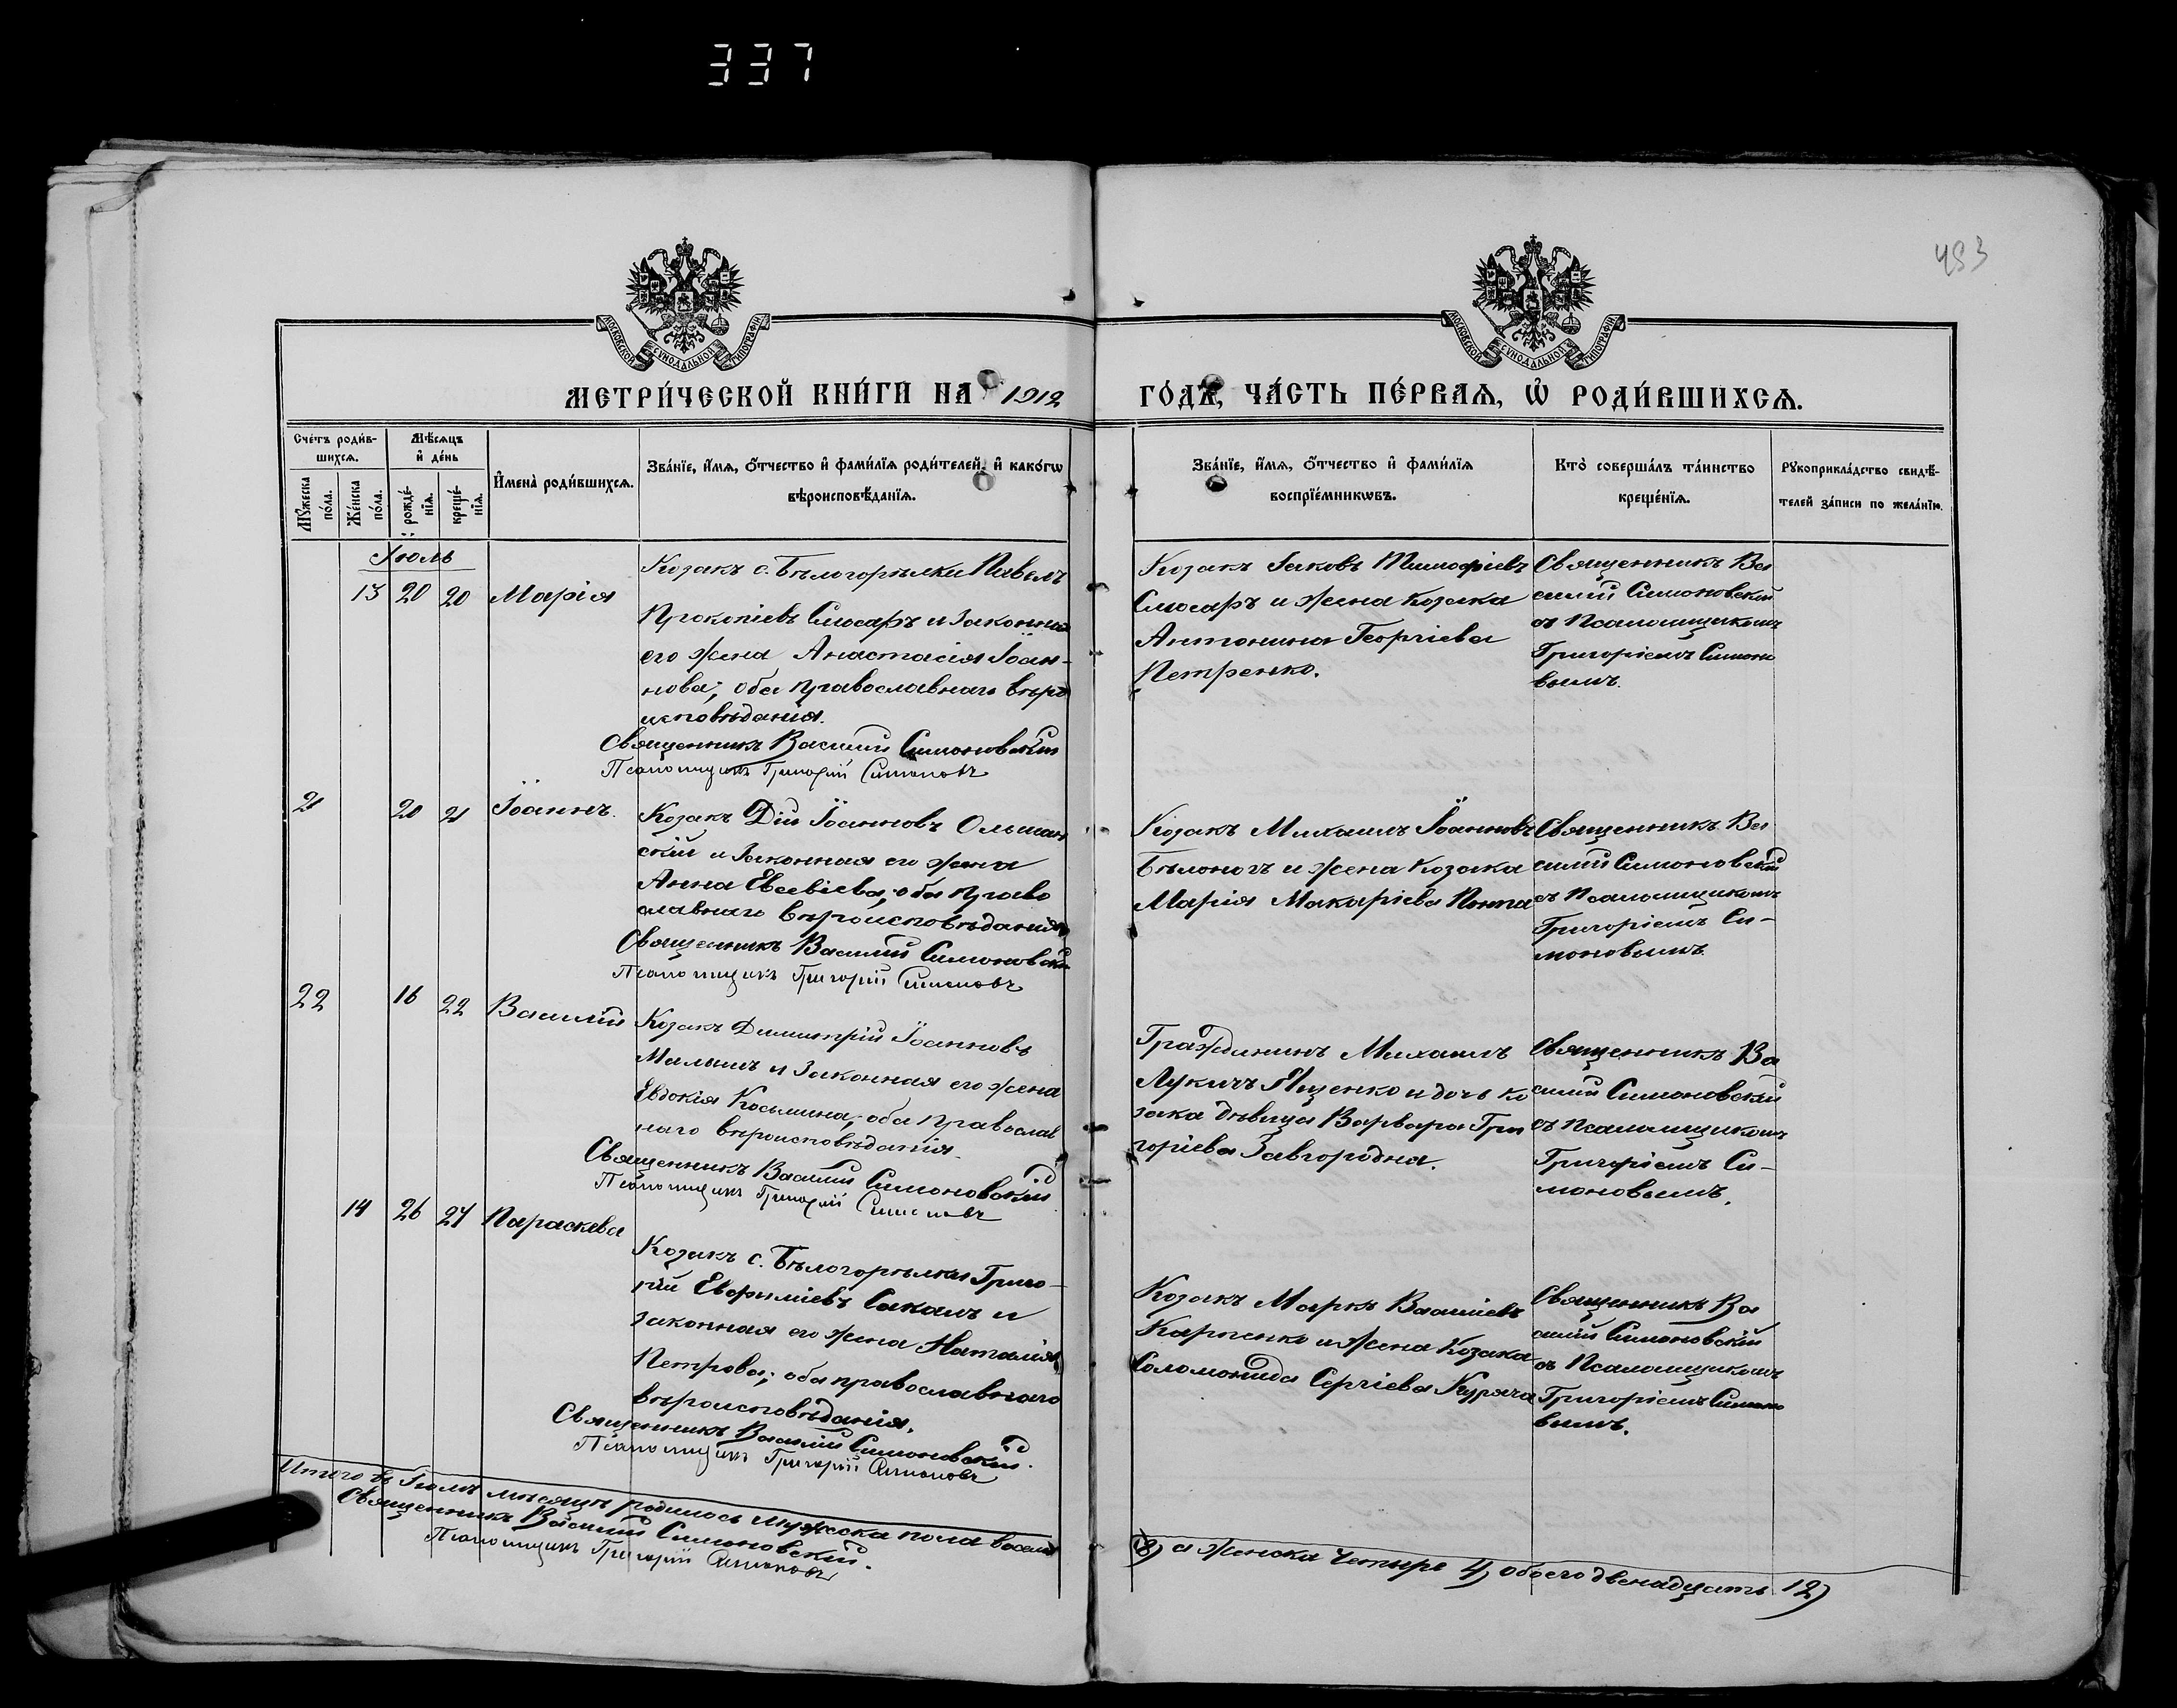 337
453
МОСКОВСКОЙ СѴНОДАЛЬНОЙ ТИПОГРАФІИ
МОСКОВСКОЙ СѴНОДАЛЬНОЙ ТИПОГРАФІИ
МЕТРИ́ЧЕСКОЙ КНИ́ГИ НА 1912
ГО́ДЪ, ЧА́СТЬ ПЕ́РВАѦ, Ѡ҆ РОДИ́ВШИХСѦ.
Сче́тъ роди́в-
шихсѧ.
Мꙋ́жеска по́ла.
Же́нска по́ла.
Мѣ́сѧцъ
и҆ де́нь
рожде́-
нїѧ.
креще́-
нїѧ.
И҆мена̀ роди́вшихсѧ.
Зва́нїе, и҆́мѧ, ѻ҆́тчество и҆ фамы́лїѧ роди́телей, и҆ како́гѡ
вѣроисповѣ́данїѧ.
Зва́нїе, и҆́мѧ, ѻ҆́тчество и҆ фами́лїѧ
воспрїе́мникѡвъ.
Кто̀ соверша́лъ та́инство
креще́нїѧ.
Рꙋкоприкла́дство свидѣ́-
телей за́писи по жела́нїю.
Іюль
13 20 20 Марія
Козакъ с. Бѣлогорѣлки Павелъ
Прокопіевъ Слюсарь и законная
его жена Анастасія Іоан-
нова; оба православнаго вѣро
исповѣданія.
Священникъ Василій Симоновскій
Псаломщикъ Григорій Симоновъ
Козакъ Іаковъ Тимофіевъ
Слюсарь и жена козака
Антонина Георгіева
Петренко.
Священникъ Ва
силій Симоновскій
съ Псаломщикомъ
Григоріемъ Симоно
вымъ.
21 20 21 Іоаннъ.
Козакъ Дій Іоанновъ Ольшан
скій и законная его жена
Анна Евсевіева; оба право
славнаго вѣроисповѣданія
Священникъ Василій Симоновскій
Псаломщикъ Григорій Симоновъ
Козакъ Михаилъ Іоанновъ
Бѣлоногъ и жена козака
Марія Макаріева Поппа
Священникъ Ва
силій Симоновскій
съ Псаломщикомъ
Григоріемъ Си-
моновымъ.
22 16 22 Василій
Козакъ Димитрій Іоанновъ
Малышъ и законная его жена
Евдокія Косьмина; оба православ
наго вѣроисповѣданія.
Священникъ Василій Симоновскій
Псаломщикъ Григорій Симоновъ
Гражданинъ Михаилъ
Лукичъ Ященко и дочь ко
зака дѣвица Варвара Гри
горіева Завгородна.
Священникъ Ва
силій Симоновскій
съ Псаломщикомъ
Григоріемъ Си-
моновымъ.
14 26 27 Параскева
Козакъ с. Бѣлогорѣлки Григо-
рій Евфиміевъ Сакалъ и
законная его жена Наталія
Петрова; оба православнаго
вѣроисповѣданія.
Священникъ Василій Симоновскій.
Псаломщикъ Григорій Симоновъ
Козакъ Маркъ Василіевъ
Карпенко и жена козака
Соломонида Сергіева Куряча
Священникъ Ва
силій Симоновскій
съ Псаломщикомъ
Григоріемъ Симоно
вымъ.
Итого въ Іюлѣ мѣсяцѣ родилось мужеска пола восемь
8) а женска четыре 4) обоего двенадцать 12)
Священникъ Василій Симоновскій.
Псаломщикъ Григорій Симоновъ